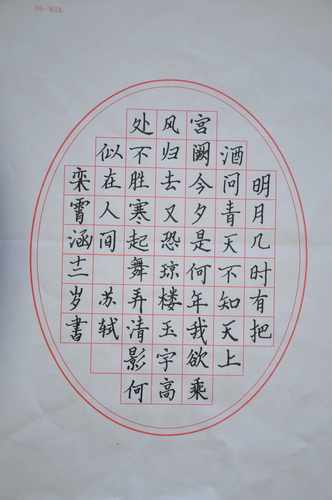 明月几时有把
酒问青天不知天上
宫阙今夕是何年我欲乘
风归去又恐琼楼玉宇高
处不胜寒起舞弄清影何
似在人间 苏轼
栾霄涵十二岁书